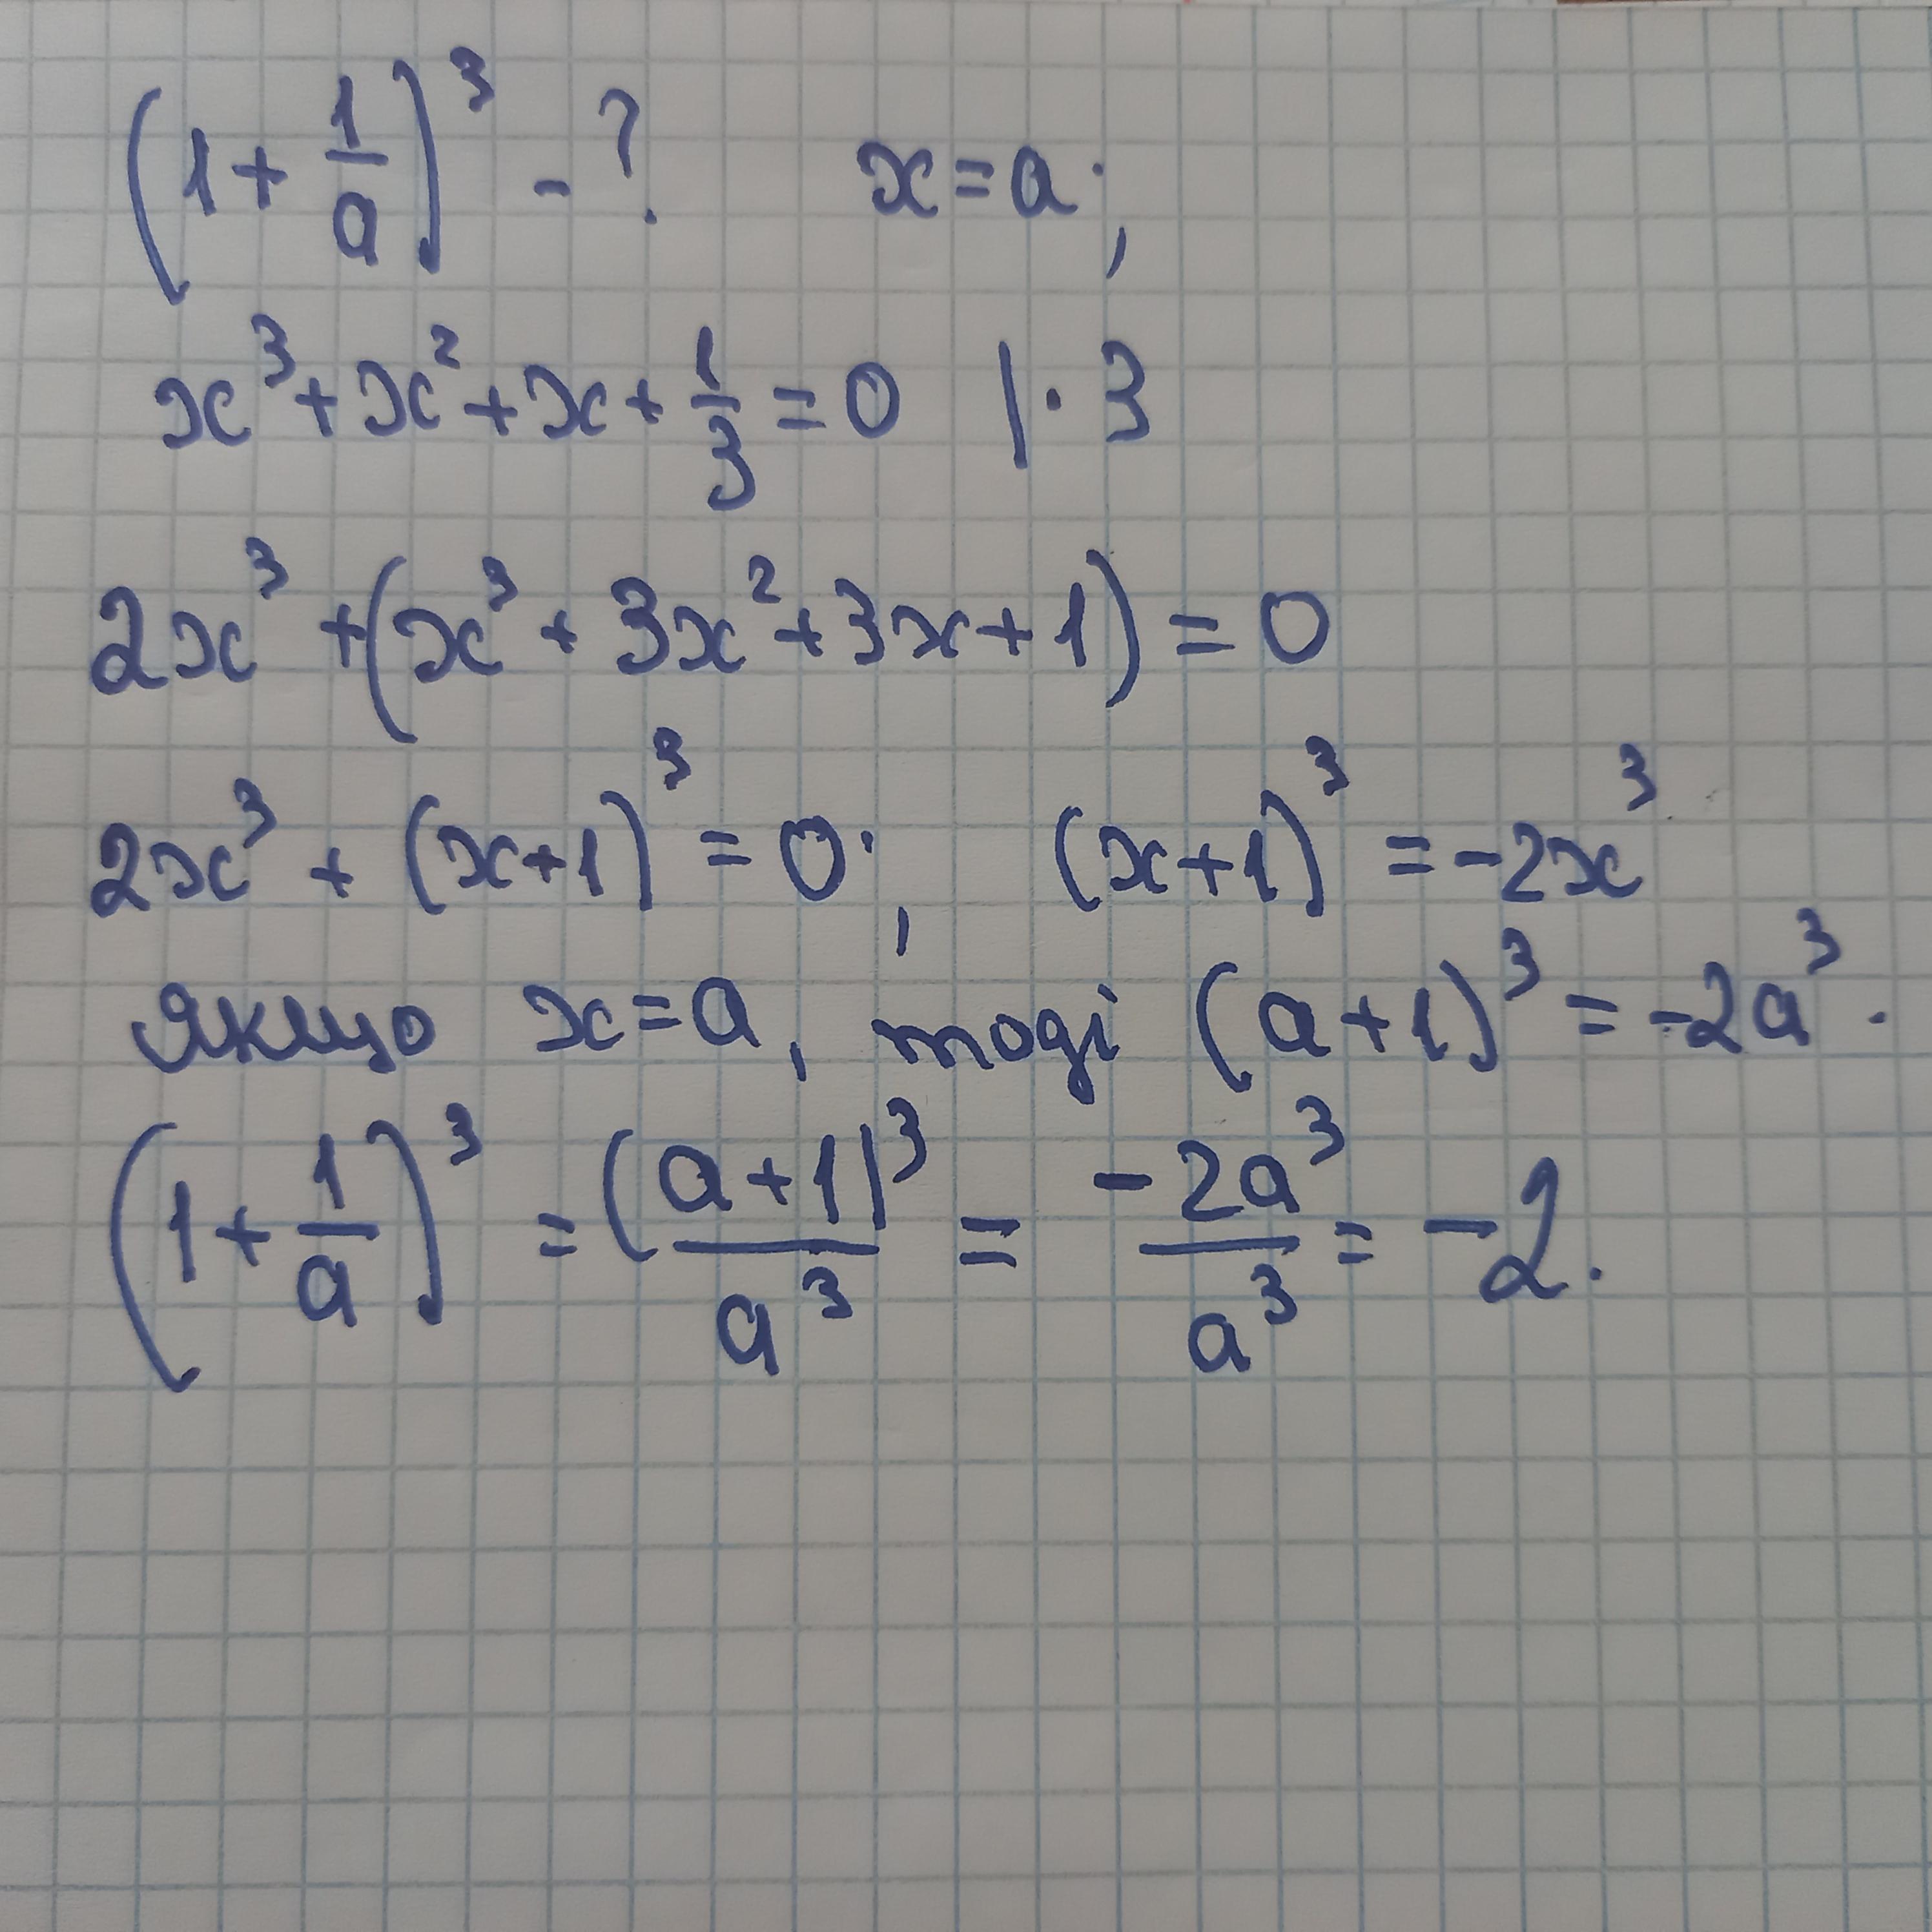 (1 + 1/a)³ - ? x = a;
x³ + x² + x + 1/3 = 0 | · 3
2x³ + (x³ + 3x² + 3x + 1) = 0
2x³ + (x+1)³ = 0; (x+1)³ = -2x³
якщо x = a, тоді (a+1)³ = -2a³.
(1 + 1/a)³ = (a+1)³/a³ = -2a³/a³ = -2.